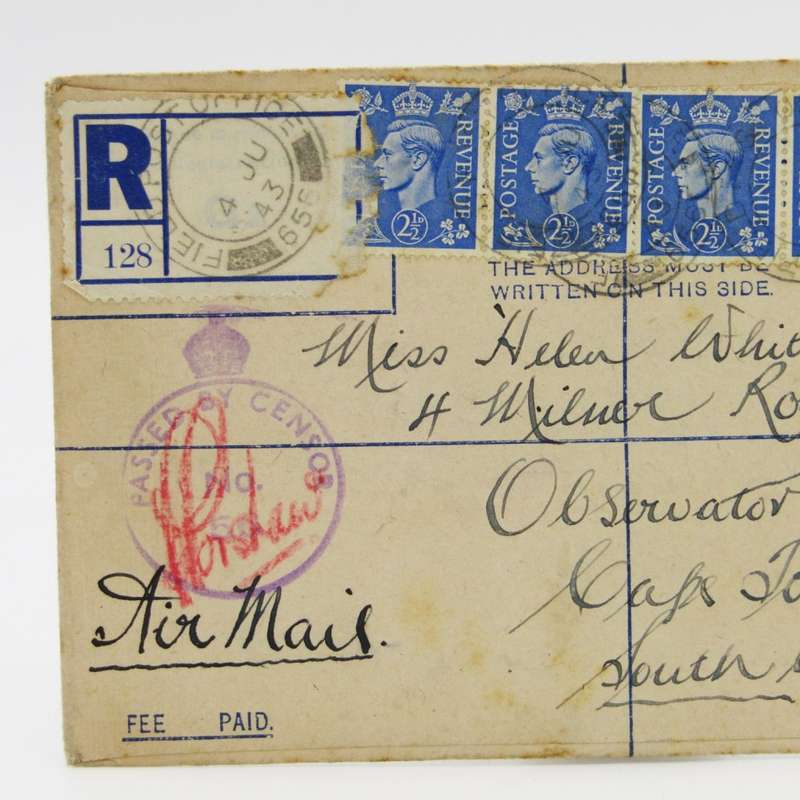 R
128
FIELD POST OFFICE
4 JU
43
655
POSTAGE REVENUE
2½D
POSTAGE REVENUE
2½D
POSTAGE REVENUE
2½D
THE ADDRESS MUST BE
WRITTEN ON THIS SIDE.
Miss Helen Whit
4 Milner Ro
Observator
Cape To
South
PASSED BY CENSOR
NO.
Air Mail.
FEE PAID.